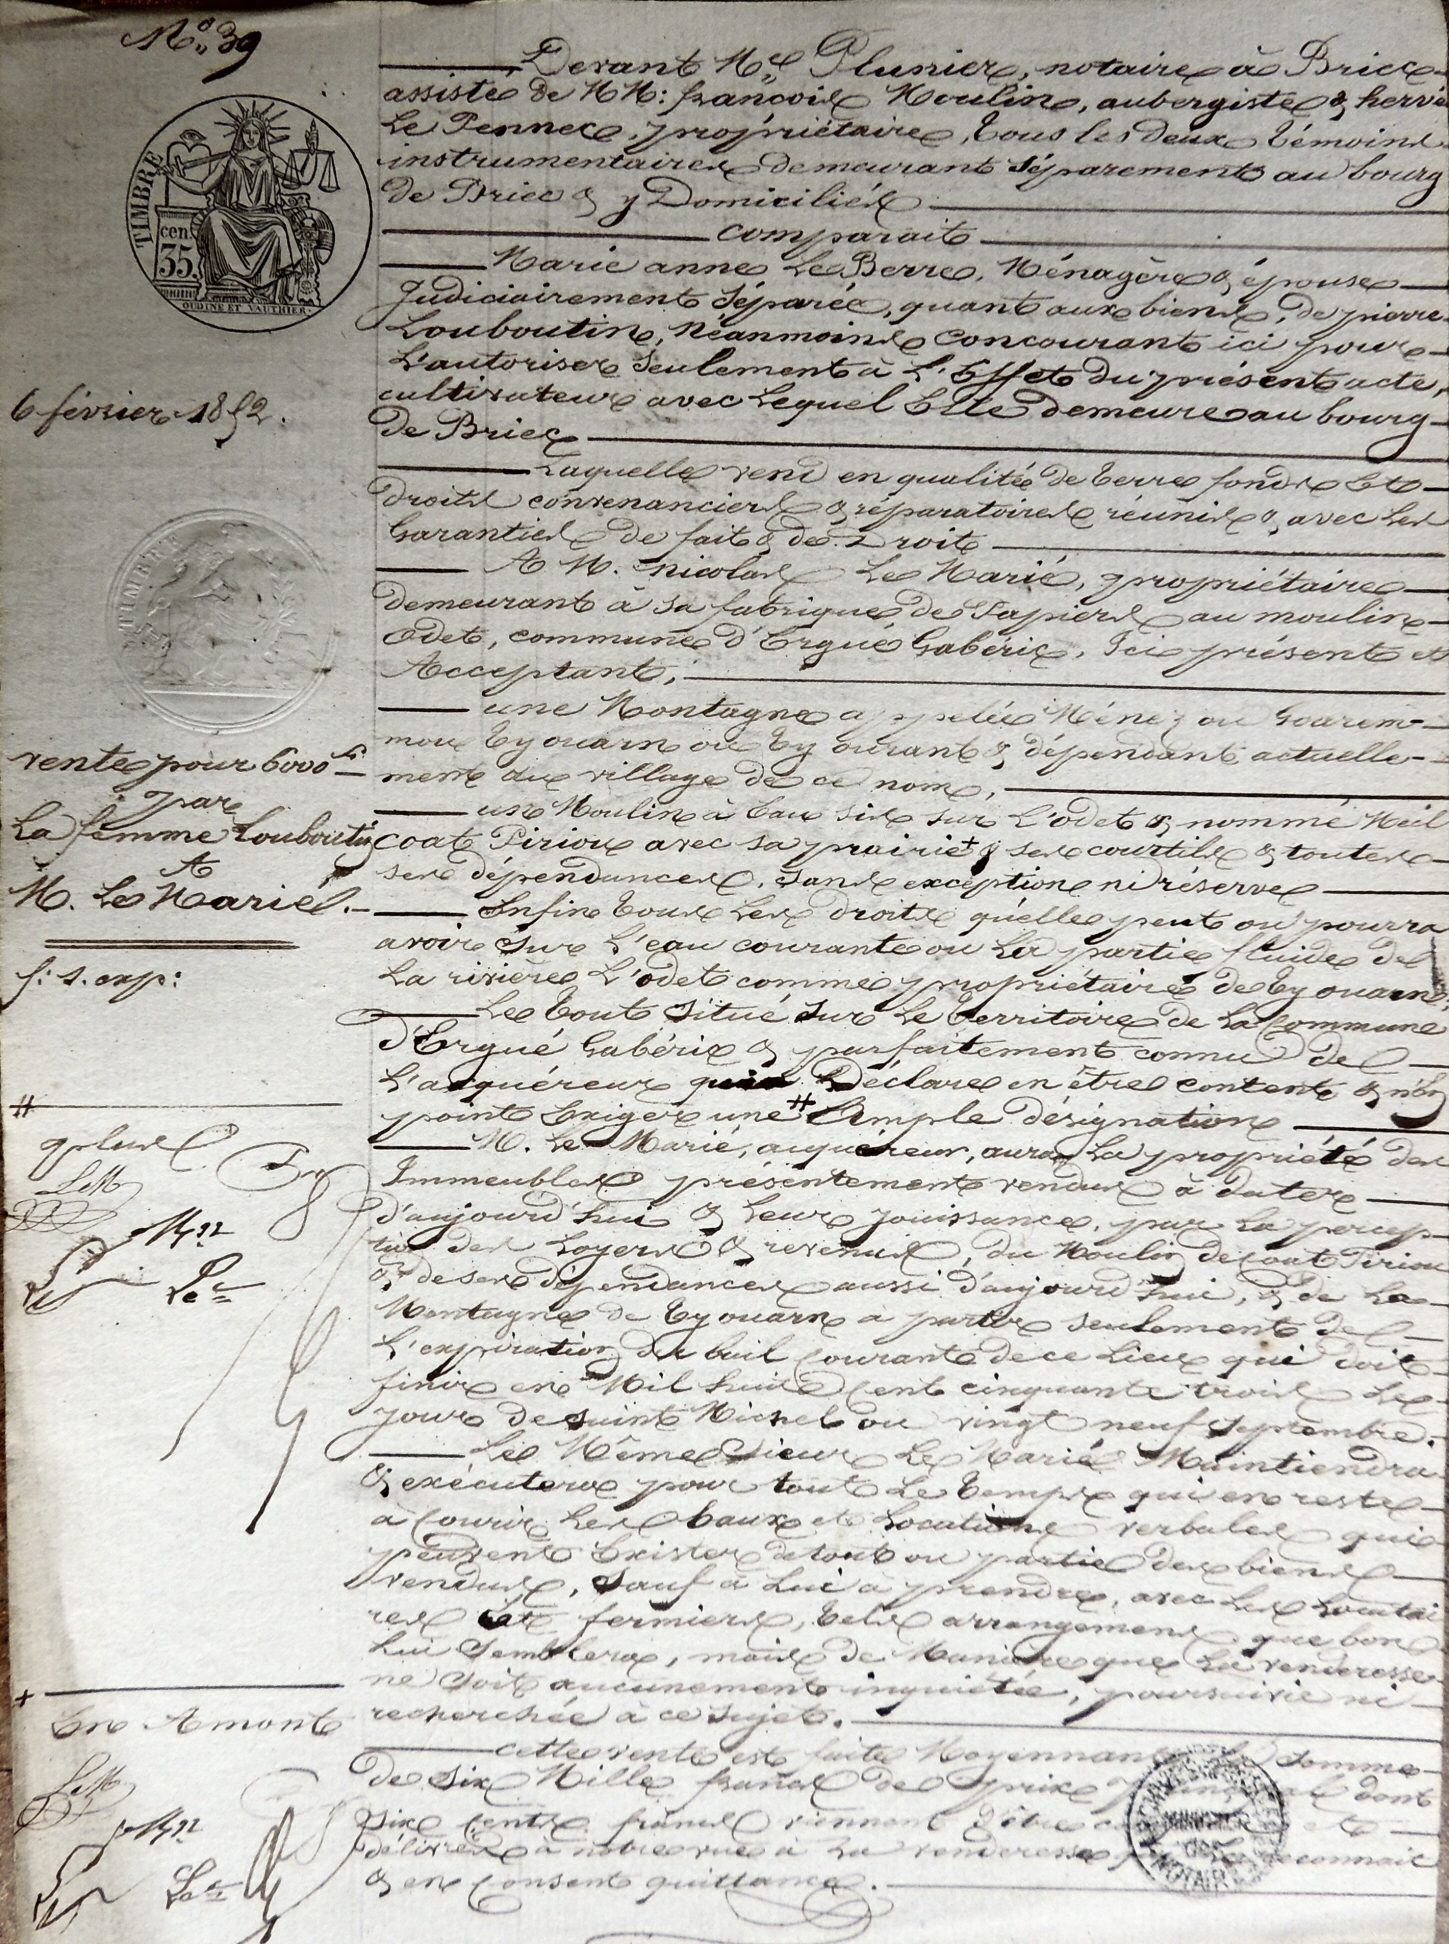 N.° 39
TIMBRE
cen.
35.
OUDINÉ ET VAUTHIER.
6 février 1852.
vente pour 6000 f.
par
La femme Louboutin
A
M. Le Marié.
f: s. exp:
#
plus
LeM
+
en Amont
LeM
Devant M.e Plunier, notaire à Briec
assisté de MM: françois Moulin, aubergiste & hervé
Le Pennec, propriétaire, tous les deux témoins
instrumentaires demeurant séparement au bourg
de Briec & y Domiciliés
comparait
Marie anne Le Berre, Ménagère & épouse
Judiciairement séparée, quant aux biens, de pierre
Louboutin, Néanmoins concourant ici pour
L'autoriser seulement à L'Effet du présent acte,
cultivateur avec Lequel Elle demeure au bourg
de Briec
Laquelle vend en qualité de terre fonds Et
droits convenanciers & réparatoires réunis & avec les
Garanties de fait & de Droit
A M. nicolas Le Marié, propriétaire
demeurant à sa fabrique de Papiers au moulin
Odet, commune d'Ergué Gabéric, Ici présent et
Acceptant;
une Montagne appelée Ménez ou Goarem
mou Ty ouarn ou Ty ourant & dépendant actuelle-
ment du village de ce nom,
un Moulin à Eau sis sur L'odet & nommé Meil
coat Piriou avec sa prairie + & ses courtils & toutes
ses dépendances, sans exception ni réserve
Enfin tous Les droits qu'elle peut ou pourra
avoir sur L'eau courante ou La partie fluide de
La rivière L'odet comme propriétaire de Ty ouarn,
Le tout situé sur Le territoire de La Commune
d'Ergué Gabéric & parfaitement connu de
L'acquéreur qui Déclare en être content & n'En
point Exiger une # Ample désignation
M. Le Marié, acquéreur, aura La propriété des
Immeubles présentement vendus à dater
d'aujourd'hui & Leur jouissance, par La percep
tion des Loyers & revenus, du Moulin de Coat Piriou
& de ses dépendances aussi d'aujourd'hui, & de La
Montagne de Ty ouarn a partir seulement de
L'expiration du bail Courant de ce Lieu qui doit
finir en Mil huit Cent cinquante trois Le
jour de saint Michel ou vingt neuf septembre.
Le Même Sieur Le Marié Maintiendra
& exécutera pour tout Le temps qui en reste
à Courir Les baux et Locations verbales qui
peuvent Exister de tout ou partie des biens
vendus, sauf à Lui à prendre, avec Les Locatai
res Et fermiers, tels arrangemens que bon
Lui semblera, mais de Manière que La venderesse
ne soit aucunement inquiétée, poursuivie ni
recherchée à ce sujet.
cette vente est faite Moyennant somme
de six Mille francs de prix dont
six Cents francs viennent d'être et
délivrés à notre vue à La venderesse reconnait
& en Consent quittance.